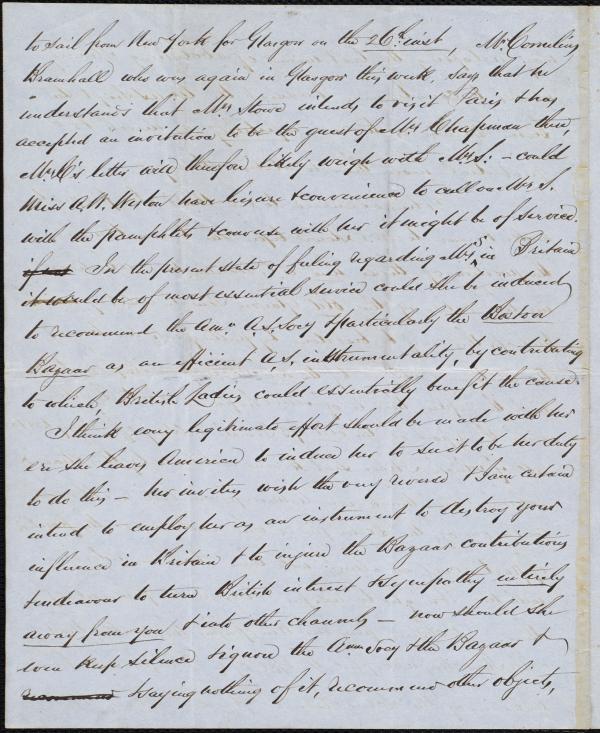 to sail from New York for Glasgow on the 26th inst, Mr. Cornelius
Bramhall who was again in Glasgow this week, says that he
understands that Mrs Stowe intends to visit Paris & has
accepted an invitation to be the guest of Mrs Chapman there,
Mrs C's letter will therefore likely weigh with Mrs S. – could
Miss A. W. Weston have leisure & convenience to call on Mrs S.
with the pamphlets & converse with her it might be of service.
if not In the present state of feeling regarding Mrs S. in Britain
it would be of most essential service could she be induced
to recommend the Amn A.S. Socy & particularly the Boston
Bazaar as an efficient A.S. instrumentality, by contributing
to which, British Ladies could essentially benefit the cause.
I think every legitimate effort should be made with her
ere she leaves America to induce her to see it to be her duty
to do this – her inviters wish the very reverse & I am certain
intend to employ her as an instrument to destroy your
influence in Britain & to injure the Bazaar contributions
& endeavour to turn British interest & sympathy entirely
away from you & into other channels – now should she
even keep silence & ignore the Amn Socy & the Bazaar &
recommend & saying nothing of it, recommend other objects,